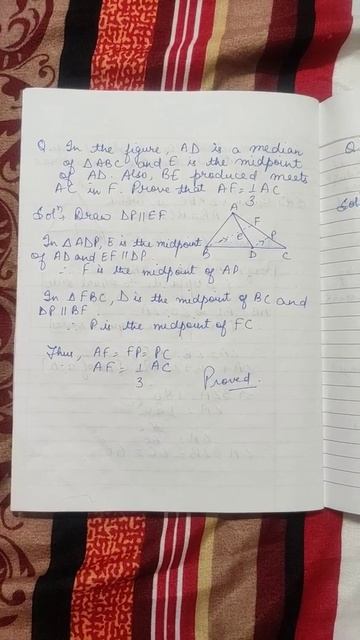 Q In the figure, AD is a median
of △ABC and E is the midpoint
of AD. Also, BE produced meets
AC in F. Prove that AF = 1 AC
3
Solⁿ, Draw DP || EF
A
F
E
P
B
D
C
In △ADP, E is the midpoint
of AD and EF || DP
∴ F is the midpoint of AP.
In △FBC, D is the midpoint of BC and
DP || BF.
∴ P is the midpoint of FC
Thus, AF = FP = PC
AF = 1 AC
3
Proved.
Q
Sol